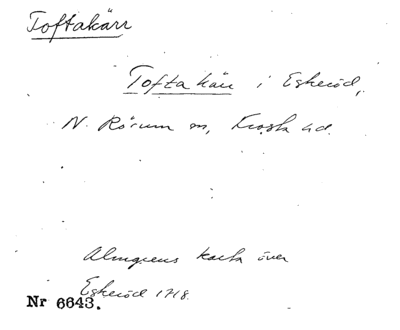 Toftakärr
Tofta kärr i Eskeröd,
N. Rörum sn, Frosta hd.
Almgrens karta över
Eskeröd 1718.
Nr 6643.